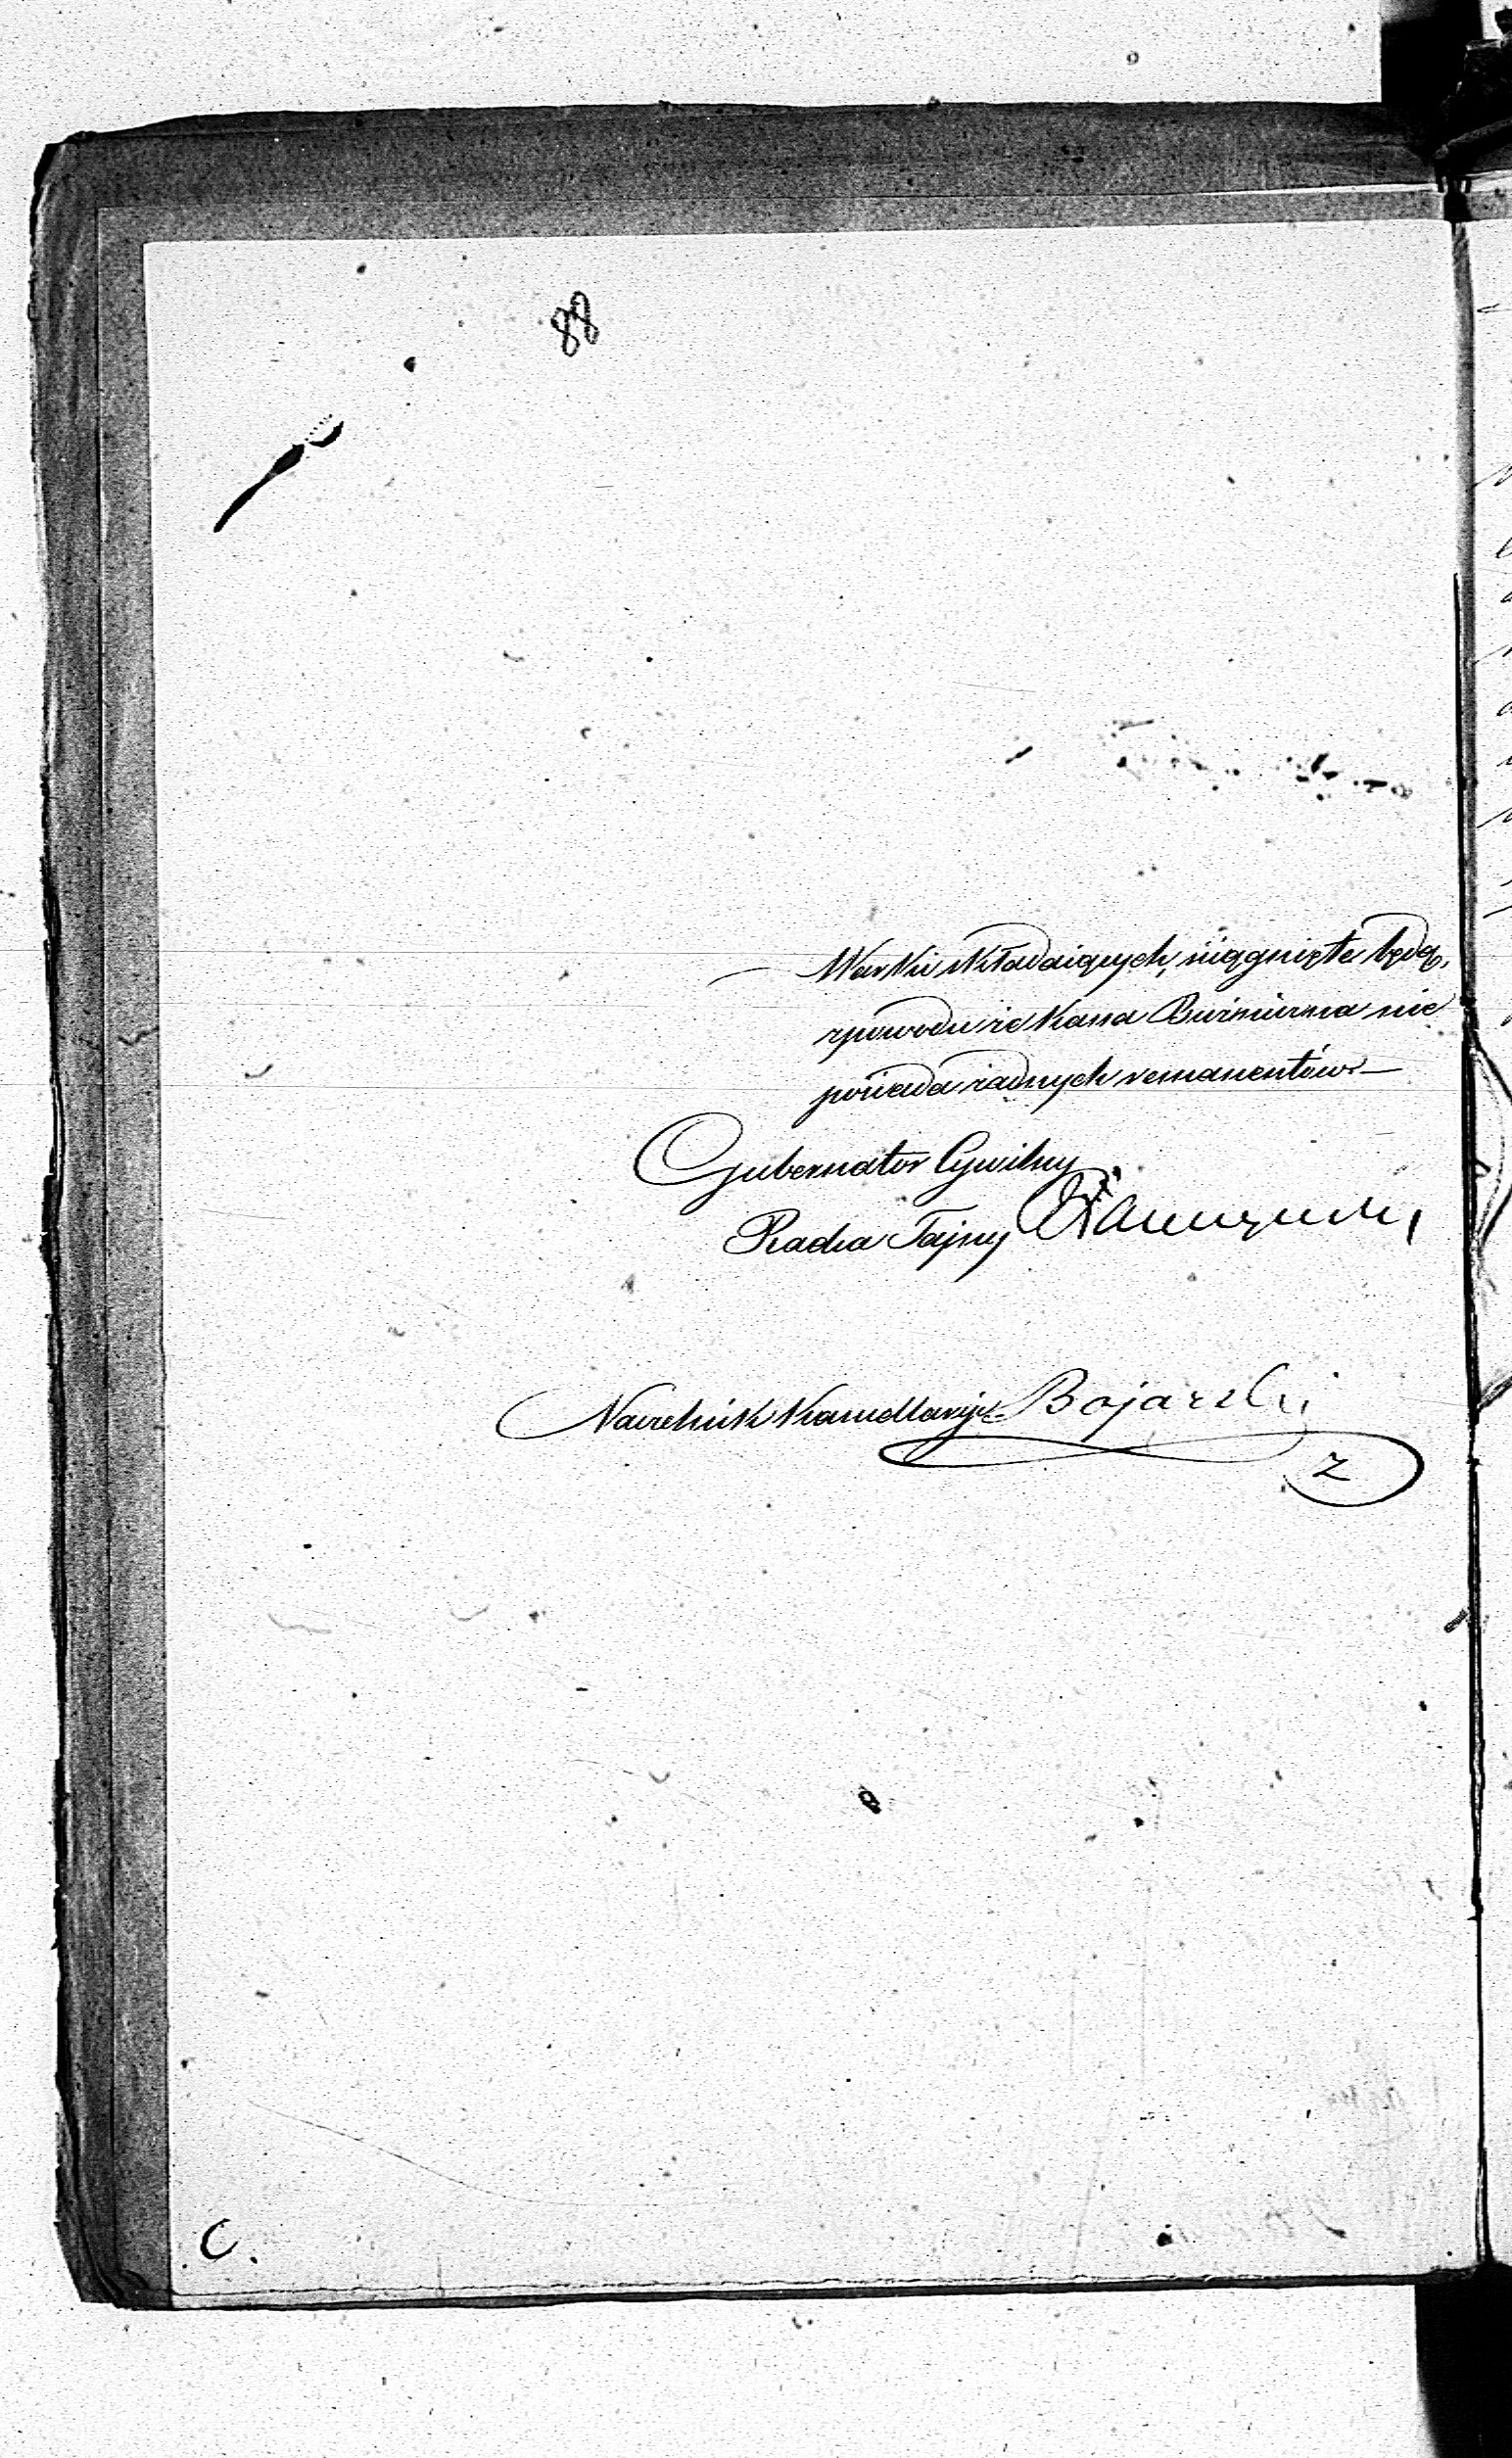 88
składaiących, siągnięte będą,
zpowodu że Kassa Bóżnicza nie
posiada żadnych remanentów —
Gubernator Cywilny
Radca Tajny
Naczelnik Kancellaryi Bojarski
C.